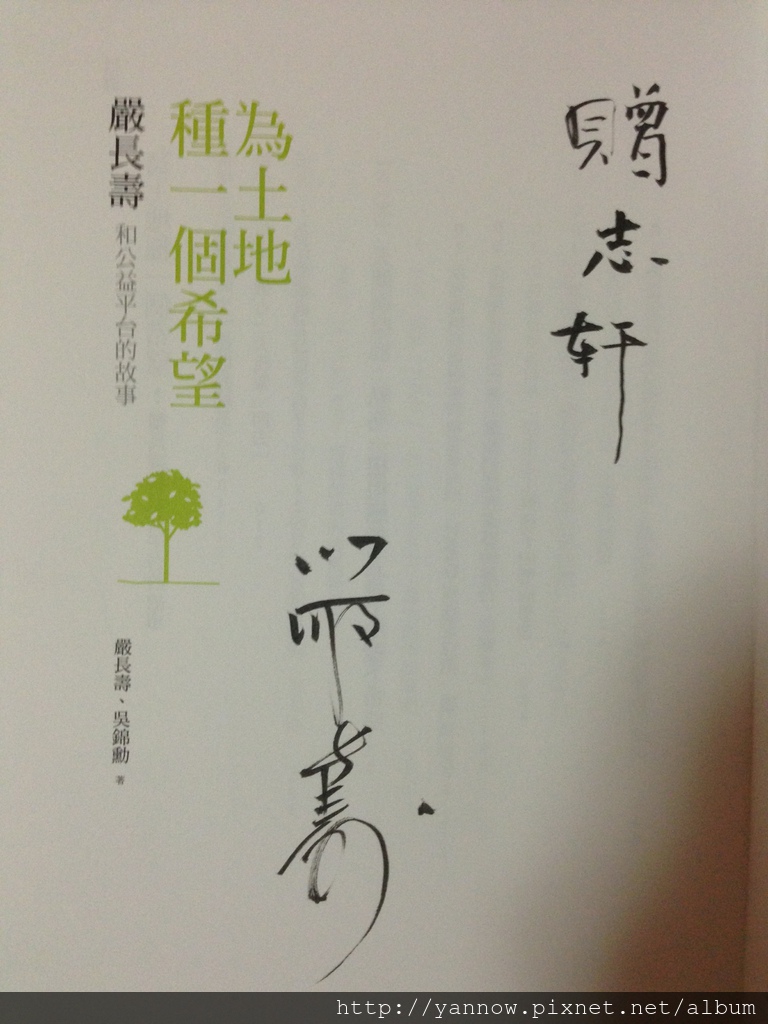 贈
志
軒
為土地
種一個希望
嚴長壽 和公益平台的故事
嚴長壽、吳錦勳 著
嚴長壽
http://yannow.pixnet.net/album